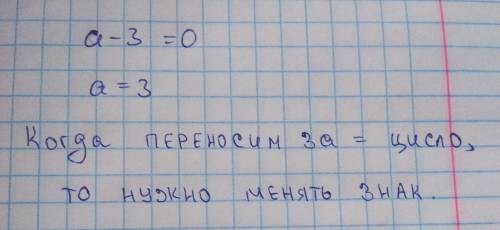 а - 3 = 0
а = 3
Когда переносим за = цисло,
то нужно менять знак.